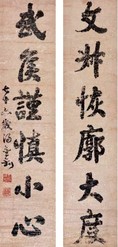 文叔恢廓大度
武侯謹慎小心